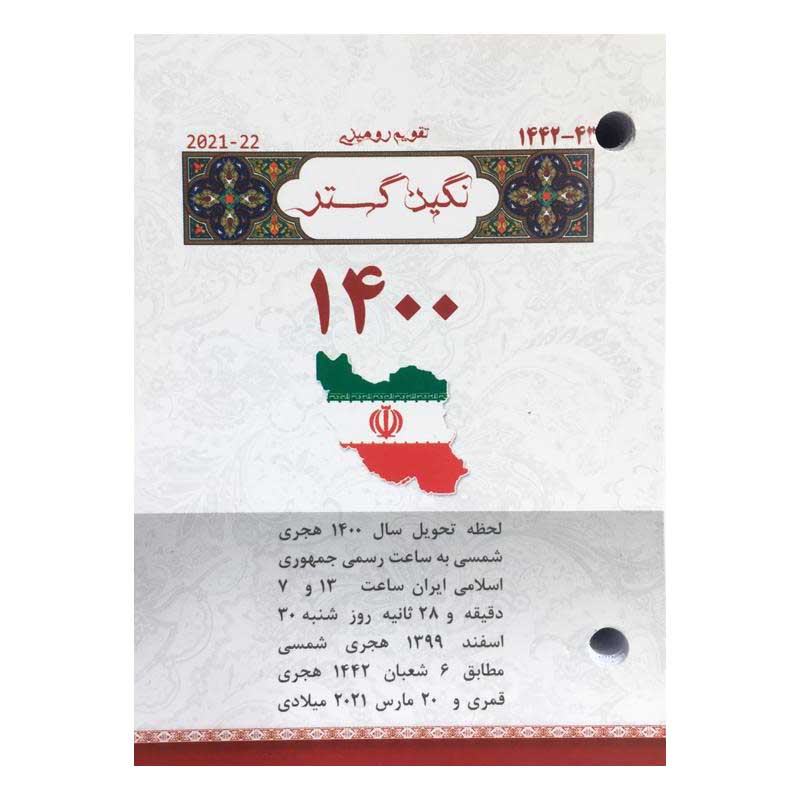 ۱۴۴۲-۴۳ تقویم رومیزی 2021-22
نگین گستر
۱۴۰۰
لحظه تحویل سال ۱۴۰۰ هجری
شمسی به ساعت رسمی جمهوری
اسلامی ایران ساعت ۱۳ و ۷
دقیقه و ۲۸ ثانیه روز شنبه ۳۰
اسفند ۱۳۹۹ هجری شمسی
مطابق ۶ شعبان ۱۴۴۲ هجری
قمری و ۲۰ مارس ۲۰۲۱ میلادی